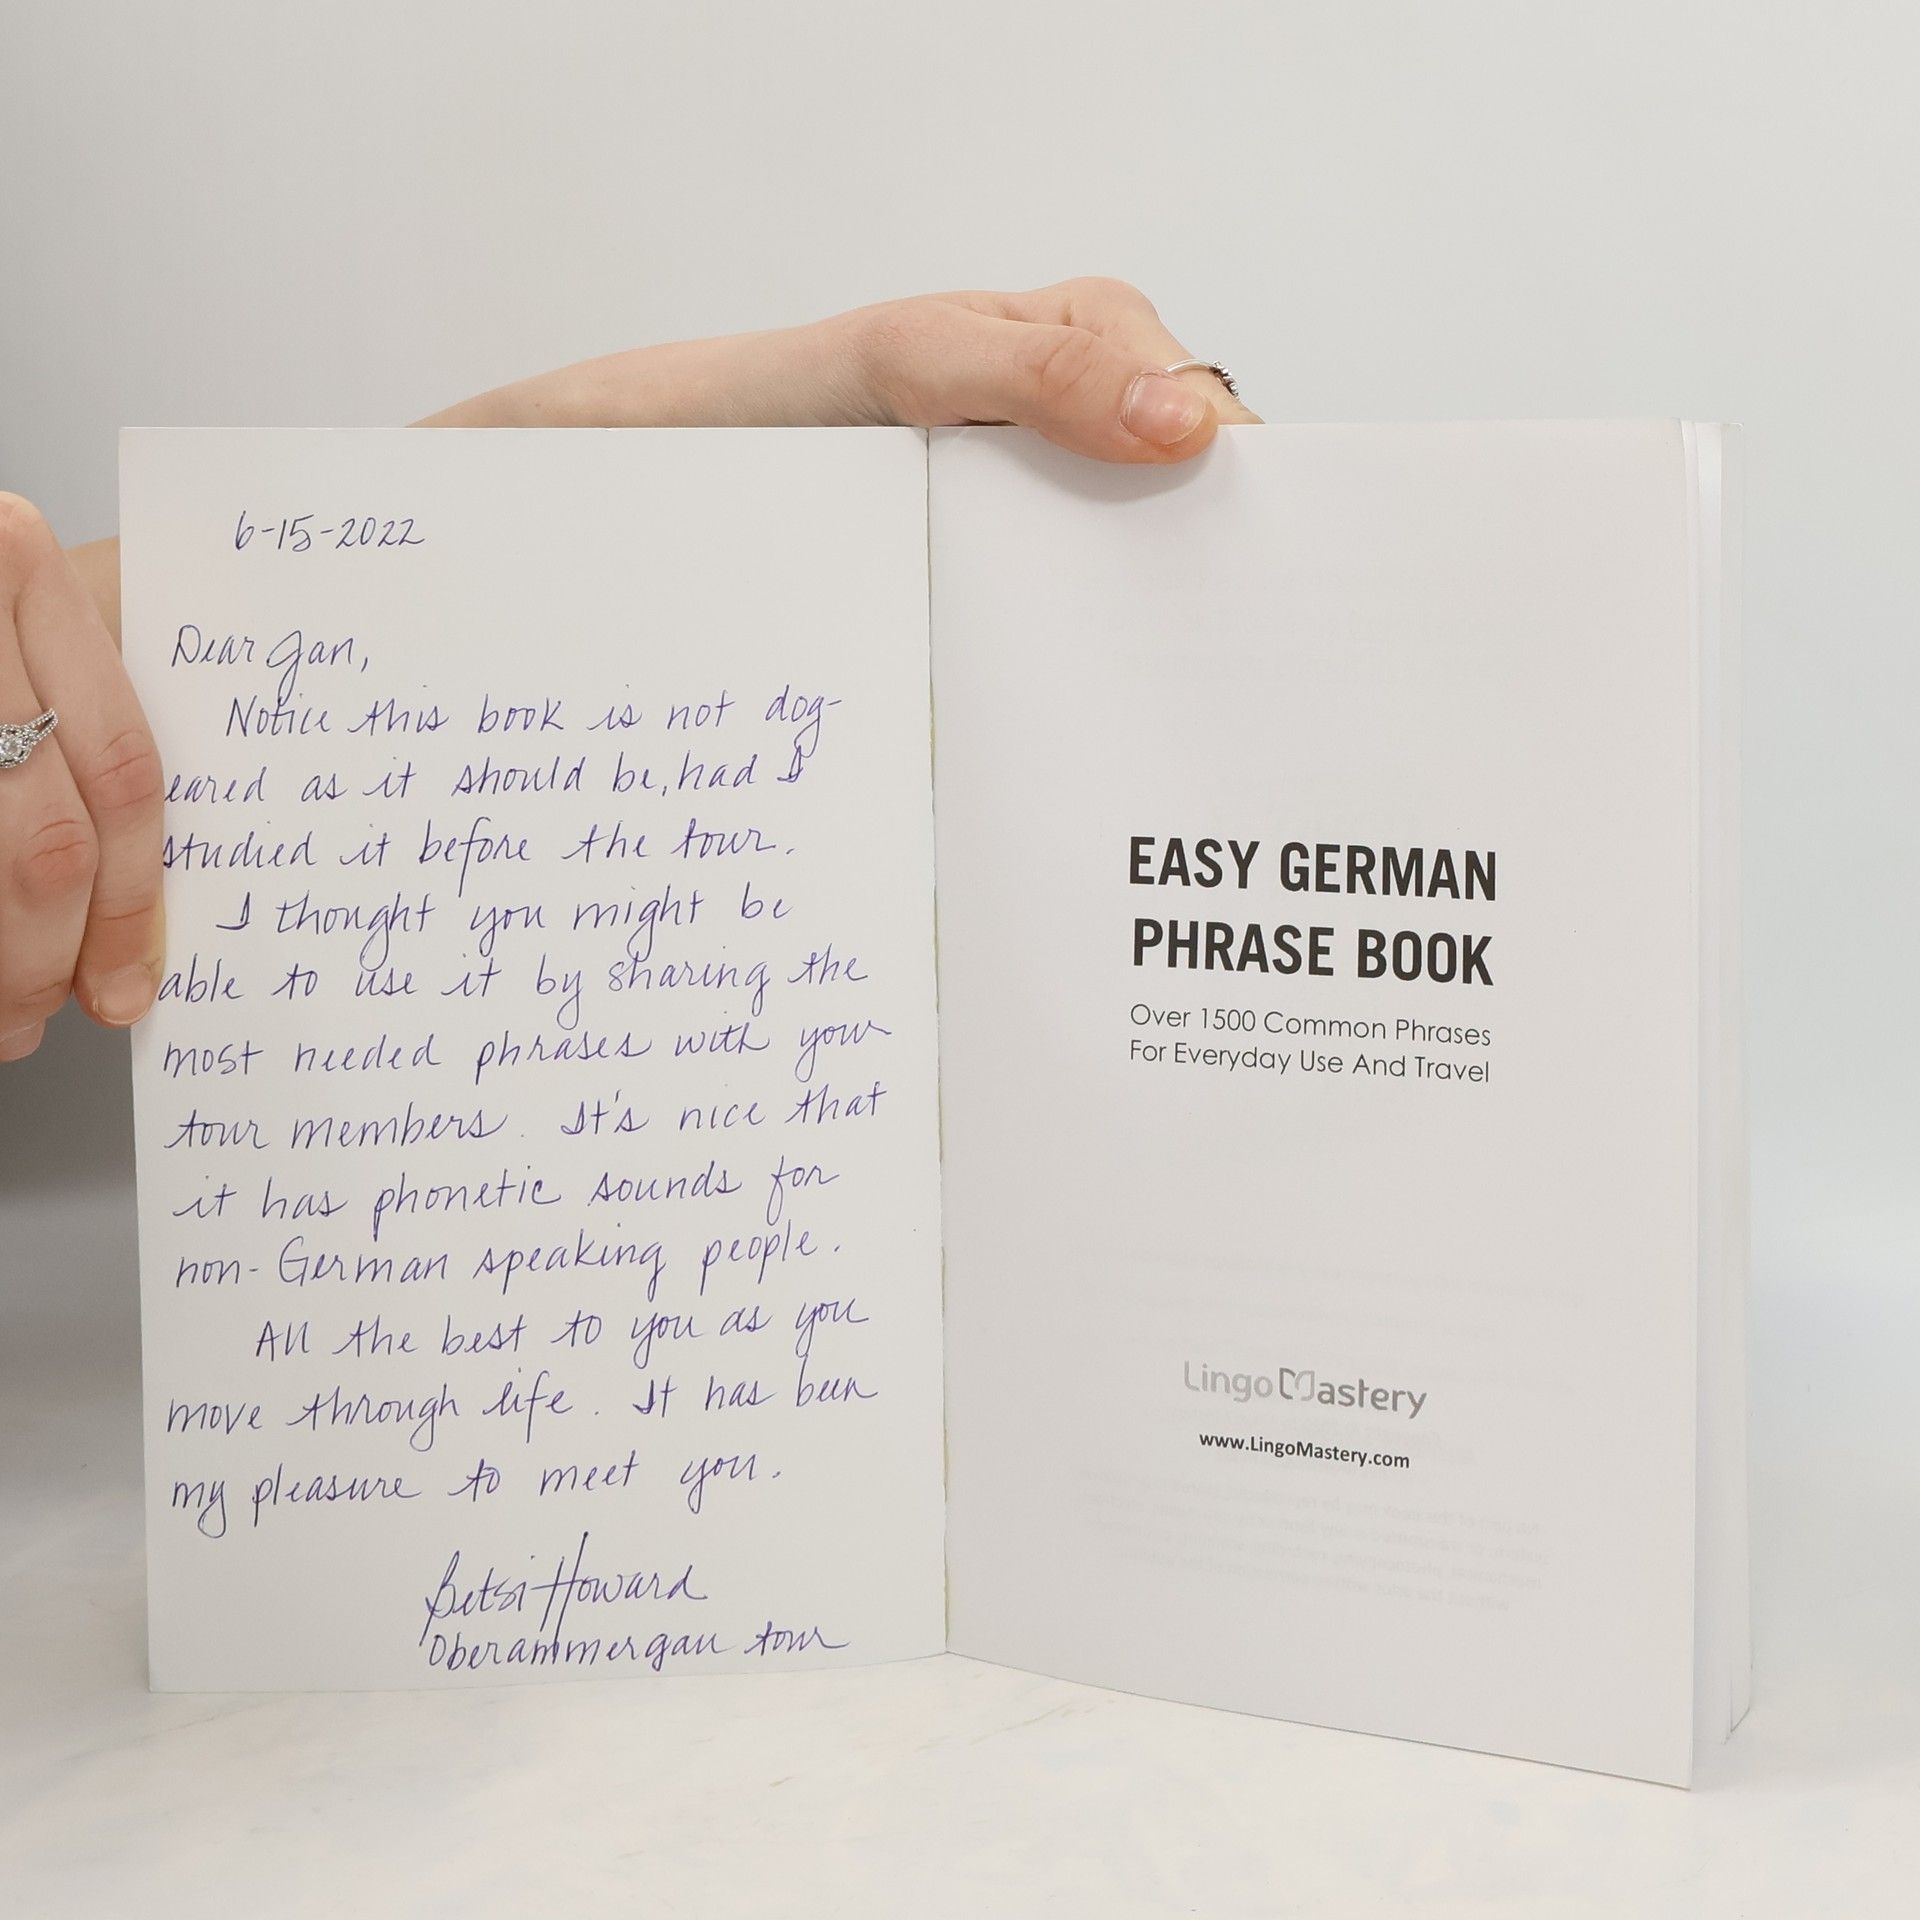 6-15-2022
Dear Jan,
Notice this book is not dog-
eared as it should be, had I
studied it before the tour.
I thought you might be
able to use it by sharing the
most needed phrases with your
tour members. It's nice that
it has phonetic sounds for
non-German speaking people.
All the best to you as you
move through life. It has been
my pleasure to meet you.
Betsi Howard
Oberammergau tour
EASY GERMAN
PHRASE BOOK
Over 1500 Common Phrases
For Everyday Use And Travel
LingoMastery
www.LingoMastery.com